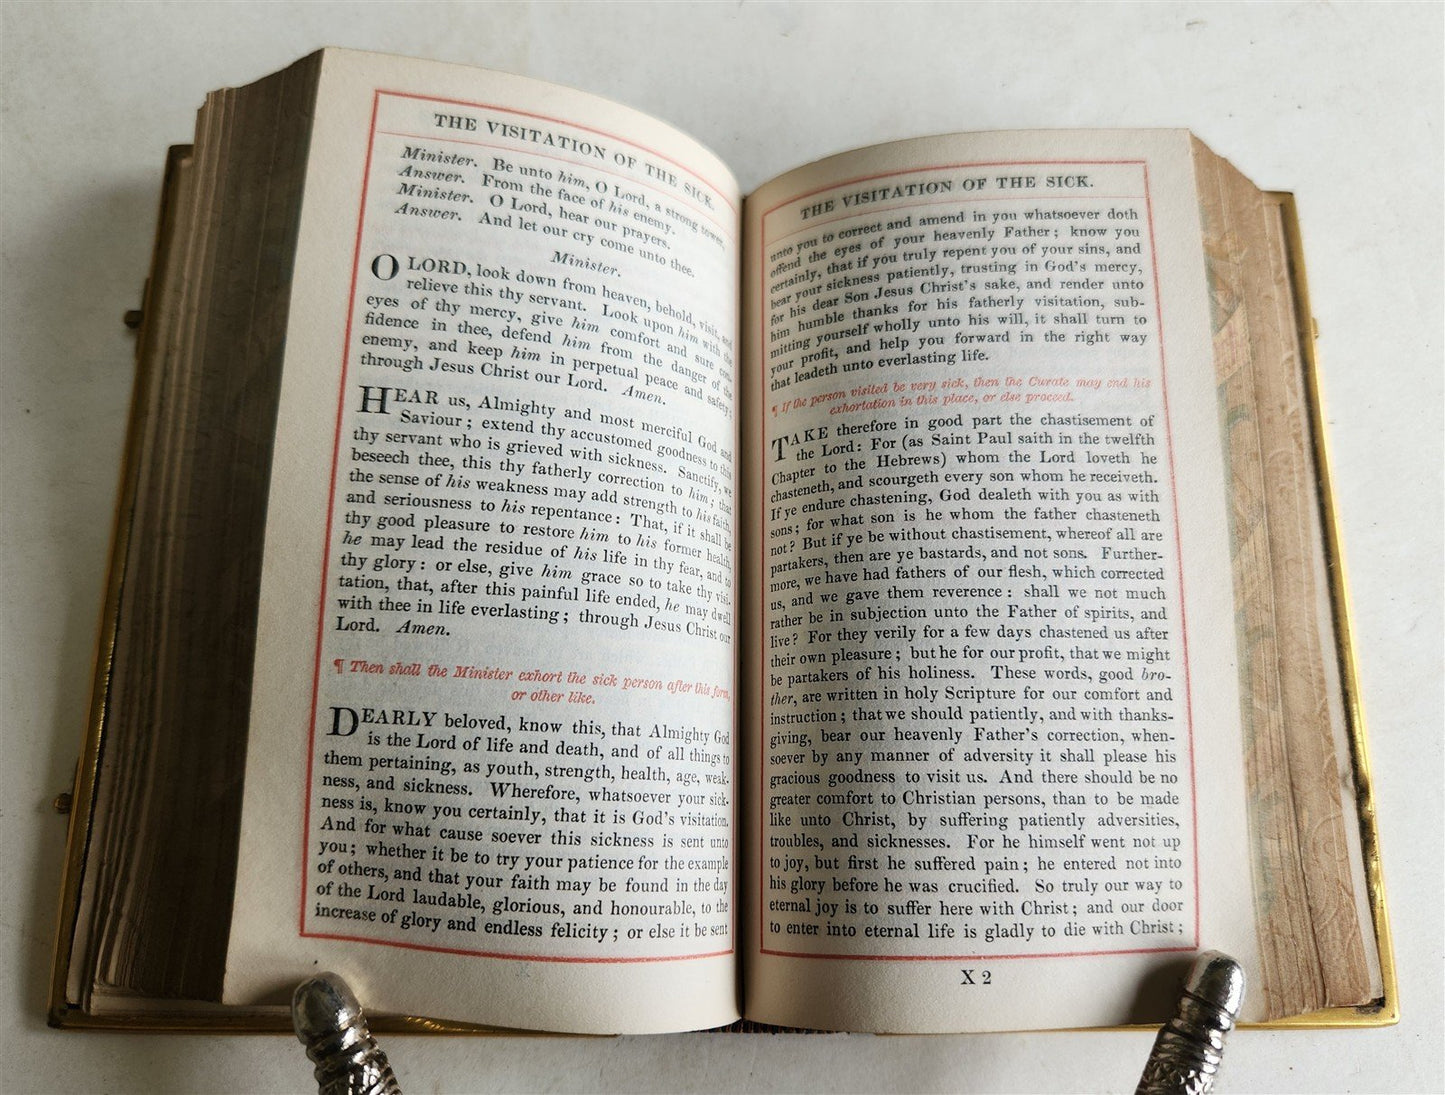 THE VISITATION OF THE SICK.
Minister. Be unto him, O Lord, a strong tower,
Answer. From the face of his enemy.
Minister. O Lord, hear our prayers.
Answer. And let our cry come unto thee.
Minister.
O LORD, look down from heaven, behold, visit, and
relieve this thy servant. Look upon him with the
eyes of thy mercy, give him comfort and sure con-
fidence in thee, defend him from the danger of the
enemy, and keep him in perpetual peace and safety;
through Jesus Christ our Lord. Amen.
HEAR us, Almighty and most merciful God and
Saviour; extend thy accustomed goodness to this
thy servant who is grieved with sickness. Sanctify, we
beseech thee, this thy fatherly correction to him; that
the sense of his weakness may add strength to his faith,
and seriousness to his repentance: That, if it shall be
thy good pleasure to restore him to his former health,
he may lead the residue of his life in thy fear, and to
thy glory: or else, give him grace so to take thy visi-
tation, that, after this painful life ended, he may dwell
with thee in life everlasting; through Jesus Christ our
Lord. Amen.
¶ Then shall the Minister exhort the sick person after this form,
or other like.
DEARLY beloved, know this, that Almighty God
is the Lord of life and death, and of all things to
them pertaining, as youth, strength, health, age, weak-
ness, and sickness. Wherefore, whatsoever your sick-
ness is, know you certainly, that it is God's visitation.
And for what cause soever this sickness is sent unto
you; whether it be to try your patience for the example
of others, and that your faith may be found in the day
of the Lord laudable, glorious, and honourable, to the
increase of glory and endless felicity; or else it be sent
THE VISITATION OF THE SICK.
unto you to correct and amend in you whatsoever doth
offend the eyes of your heavenly Father; know you
certainly, that if you truly repent you of your sins, and
bear your sickness patiently, trusting in God's mercy,
for his dear Son Jesus Christ's sake, and render unto
him humble thanks for his fatherly visitation, sub-
mitting yourself wholly unto his will, it shall turn to
your profit, and help you forward in the right way
that leadeth unto everlasting life.
¶ If the person visited be very sick, then the Curate may end his
exhortation in this place, or else proceed.
TAKE therefore in good part the chastisement of
the Lord: For (as Saint Paul saith in the twelfth
Chapter to the Hebrews) whom the Lord loveth he
chasteneth, and scourgeth every son whom he receiveth.
If ye endure chastening, God dealeth with you as with
sons; for what son is he whom the father chasteneth
not? But if ye be without chastisement, whereof all are
partakers, then are ye bastards, and not sons. Further-
more, we have had fathers of our flesh, which corrected
us, and we gave them reverence: shall we not much
rather be in subjection unto the Father of spirits, and
live? For they verily for a few days chastened us after
their own pleasure; but he for our profit, that we might
be partakers of his holiness. These words, good bro-
ther, are written in holy Scripture for our comfort and
instruction; that we should patiently, and with thanks-
giving, bear our heavenly Father's correction, when-
soever by any manner of adversity it shall please his
gracious goodness to visit us. And there should be no
greater comfort to Christian persons, than to be made
like unto Christ, by suffering patiently adversities,
troubles, and sicknesses. For he himself went not up
to joy, but first he suffered pain; he entered not into
his glory before he was crucified. So truly our way to
eternal joy is to suffer here with Christ; and our door
to enter into eternal life is gladly to die with Christ;
X 2